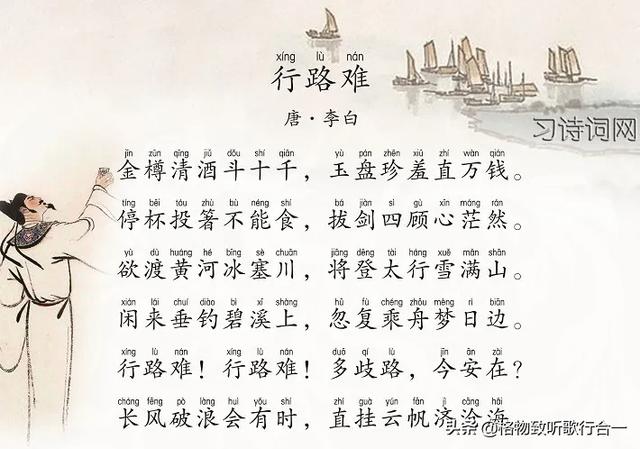 xíng lù nán
行路难
唐·李白
习诗词网
jīn zūn qīng jiǔ dǒu shí qiān yù pán zhēn xiū zhí wàn qián
金樽清酒斗十千，玉盘珍羞直万钱。
tíng bēi tóu zhù bù néng shí bá jiàn sì gù xīn máng rán
停杯投箸不能食，拔剑四顾心茫然。
yù dù huáng hé bīng sè chuān jiāng dēng tài háng xuě mǎn shān
欲渡黄河冰塞川，将登太行雪满山。
xián lái chuí diào bì xī shàng hū fù chéng zhōu mèng rì biān
闲来垂钓碧溪上，忽复乘舟梦日边。
xíng lù nán xíng lù nán duō qí lù jīn ān zài
行路难！行路难！多歧路，今安在？
cháng fēng pò làng huì yǒu shí zhí guà yún fān jì cāng hǎi
长风破浪会有时，直挂云帆济沧海
头条 @格物致听歌行台一